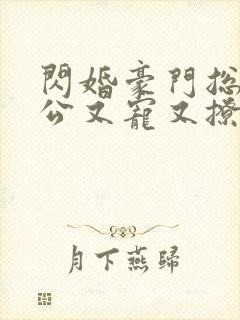 閃婚豪門总
公又寵又撩
月下燕歸